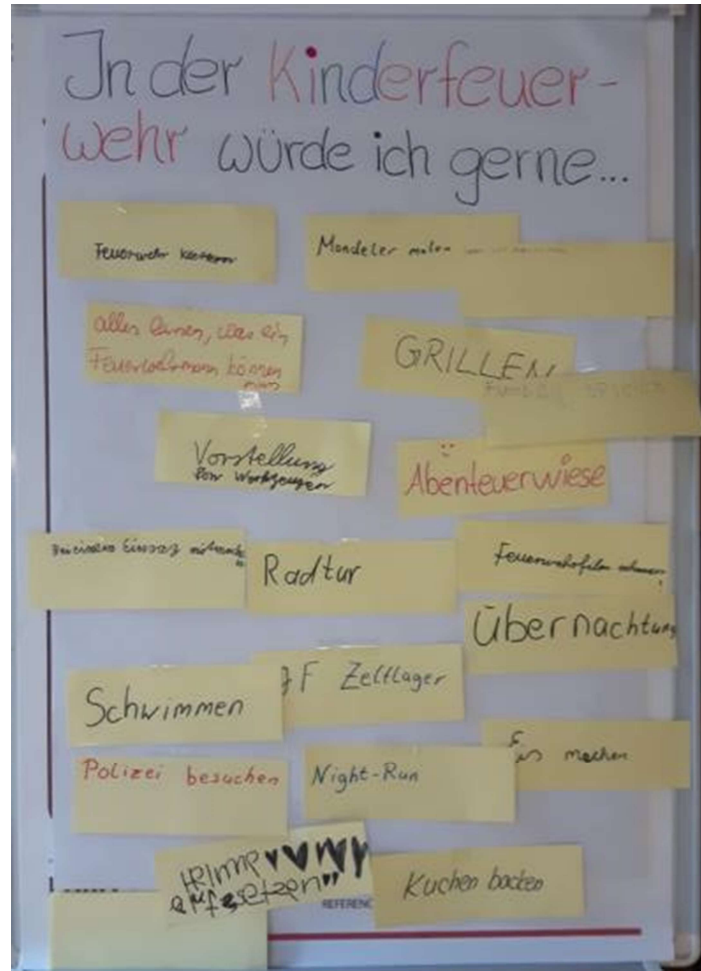 In der Kinderfeuer-
wehr würde ich gerne...
Feuerwehr
Mandeler malen
alles lernen, was ein
Feuerwehrmann können
muss
GRILLEN
Vorstellung
von Werkzeugen
Abenteuerwiese
Bei einem Einsatz
Radtur
Feuerwehrfilm schauen
Übernachtung
Schwimmen
JF Zeltlager
Eis machen
Polizei besuchen
Night-Run
Helme
aufsetzen"
Kuchen backen
REFERENC